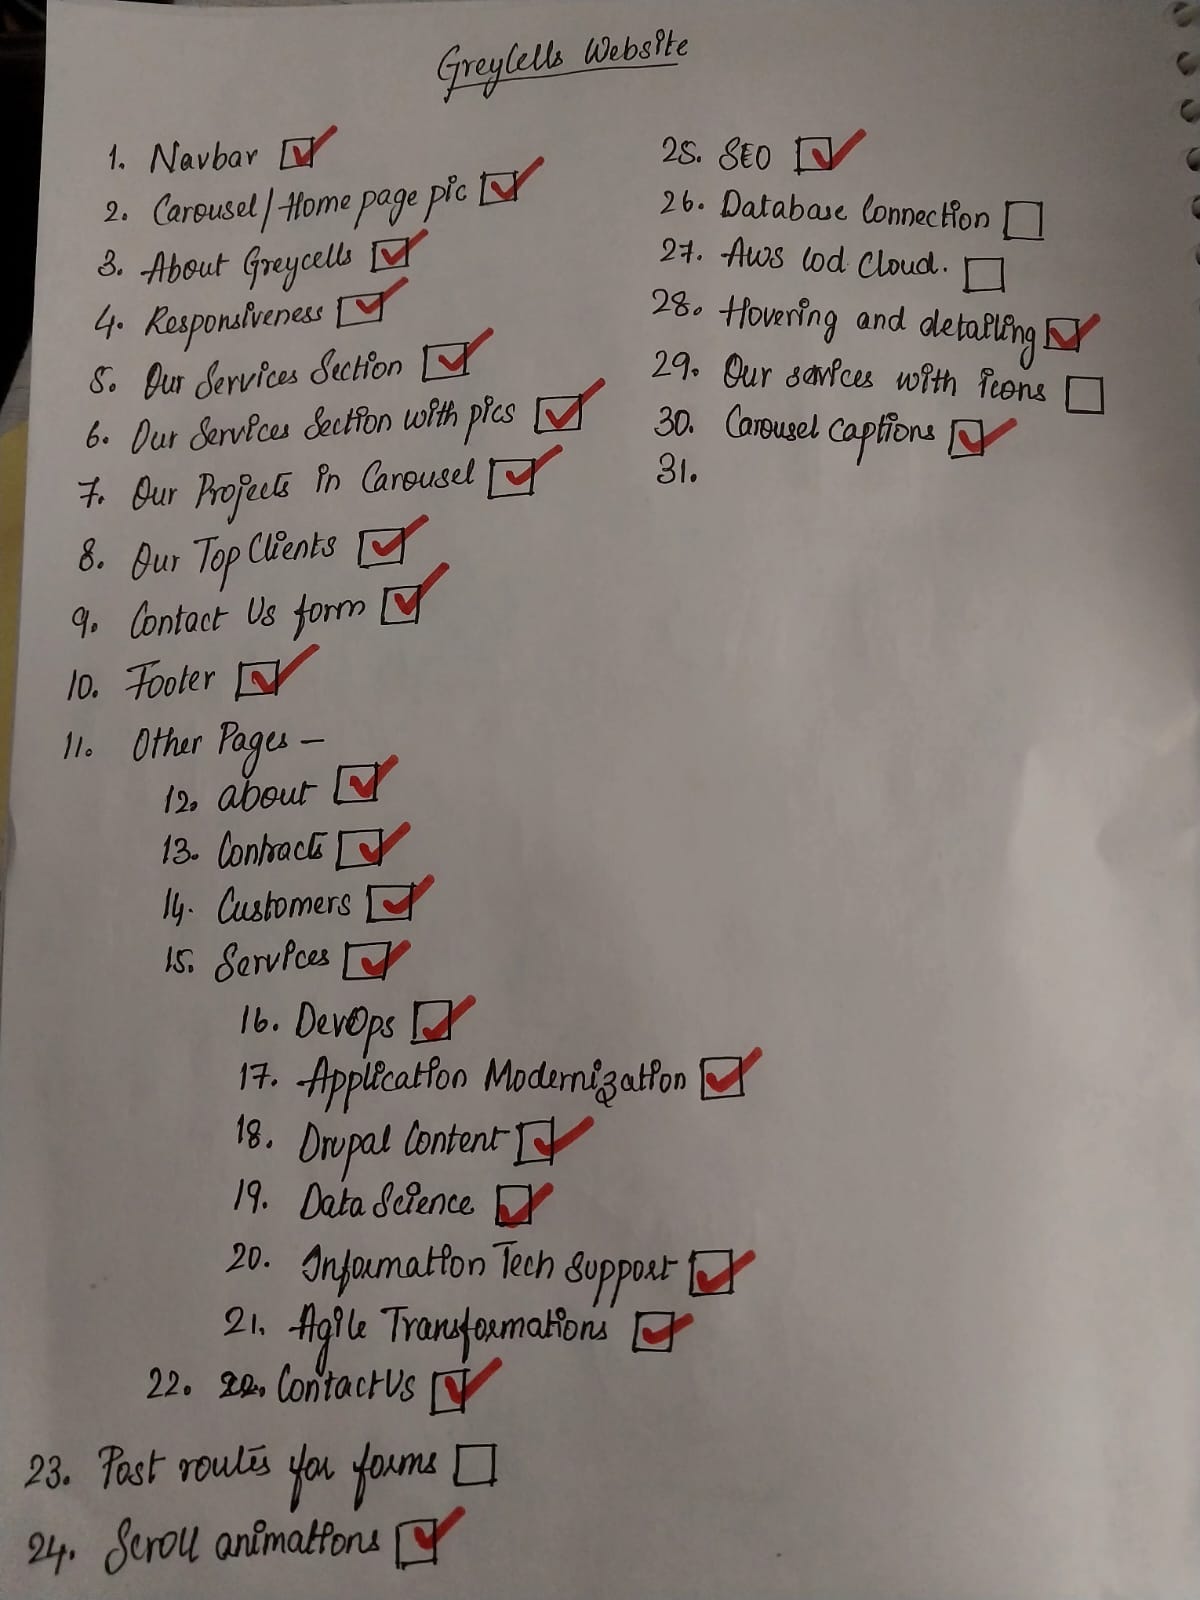 GreyCells Website
1. Navbar
2. Carousel/Home page pic
3. About Greycells
4. Responsiveness
5. Our Services Section
6. Our Services Section with pics
7. Our Projects in Carousel
8. Our Top Clients
9. Contact Us form
10. Footer
11. Other Pages –
12. about
13. Contracts
14. Customers
15. Services
16. DevOps
17. Application Modernization
18. Drupal Content
19. Data Science
20. Information Tech Support
21. Agile Transformations
22. 22. Contact Us
23. Post routes for forms
24. Scroll animations
25. SEO
26. Database Connection
27. AWS Cloud.
28. Hovering and detailing
29. Our services with icons
30. Carousel captions
31.